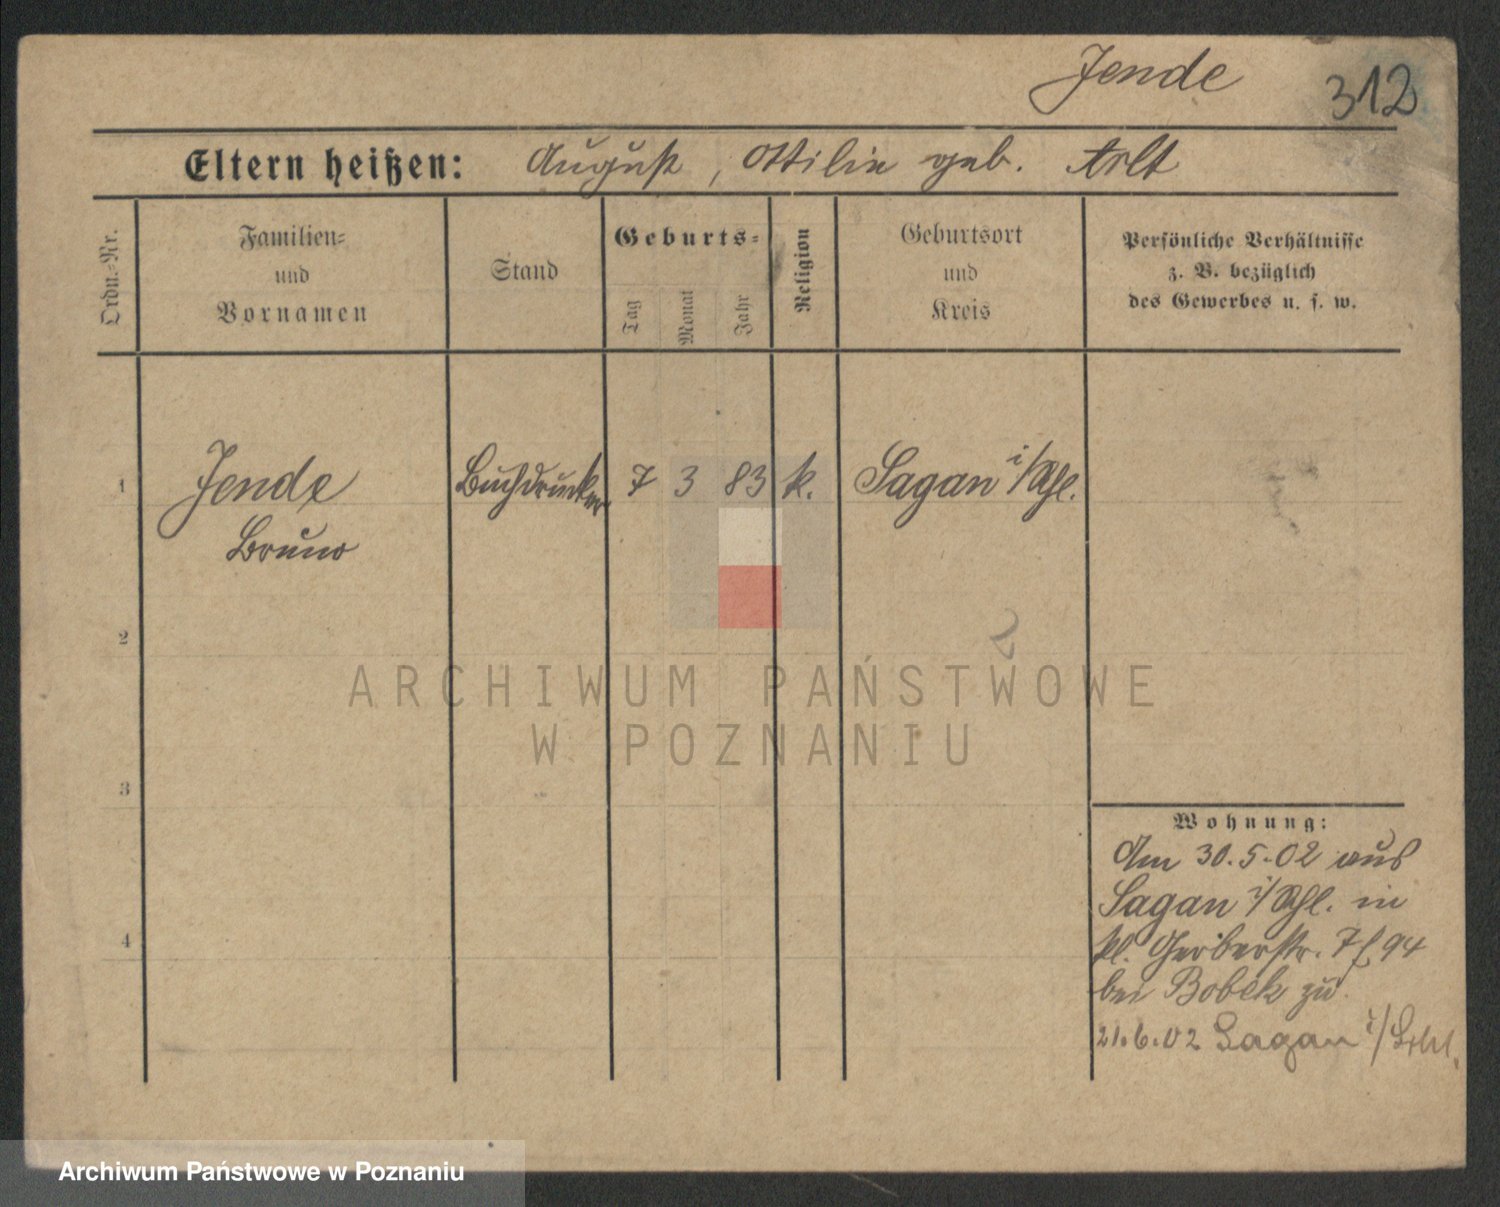 Jende
312
Eltern heißen: August, Ottilie geb. Arlt
Ordn.-Nr.
Familien-
und
Vornamen
Stand
Geburts-
Tag
Monat
Jahr
Religion
Geburtsort
und
Kreis
Persönliche Verhältnisse
z. B. bezüglich
des Gewerbes u. s. w.
1 Jende Buchdrucker 7 3 83 k. Sagan i/Schl.
Bruno
2
3
4
Wohnung:
Am 30.5.02 aus
Sagan i/Schl. in
kl. Gerberstr. 7 94
bei Bobek zu
21.6.02 Sagan i/Schl.
ARCHIWUM PAŃSTWOWE
W POZNANIU
Archiwum Państwowe w Poznaniu